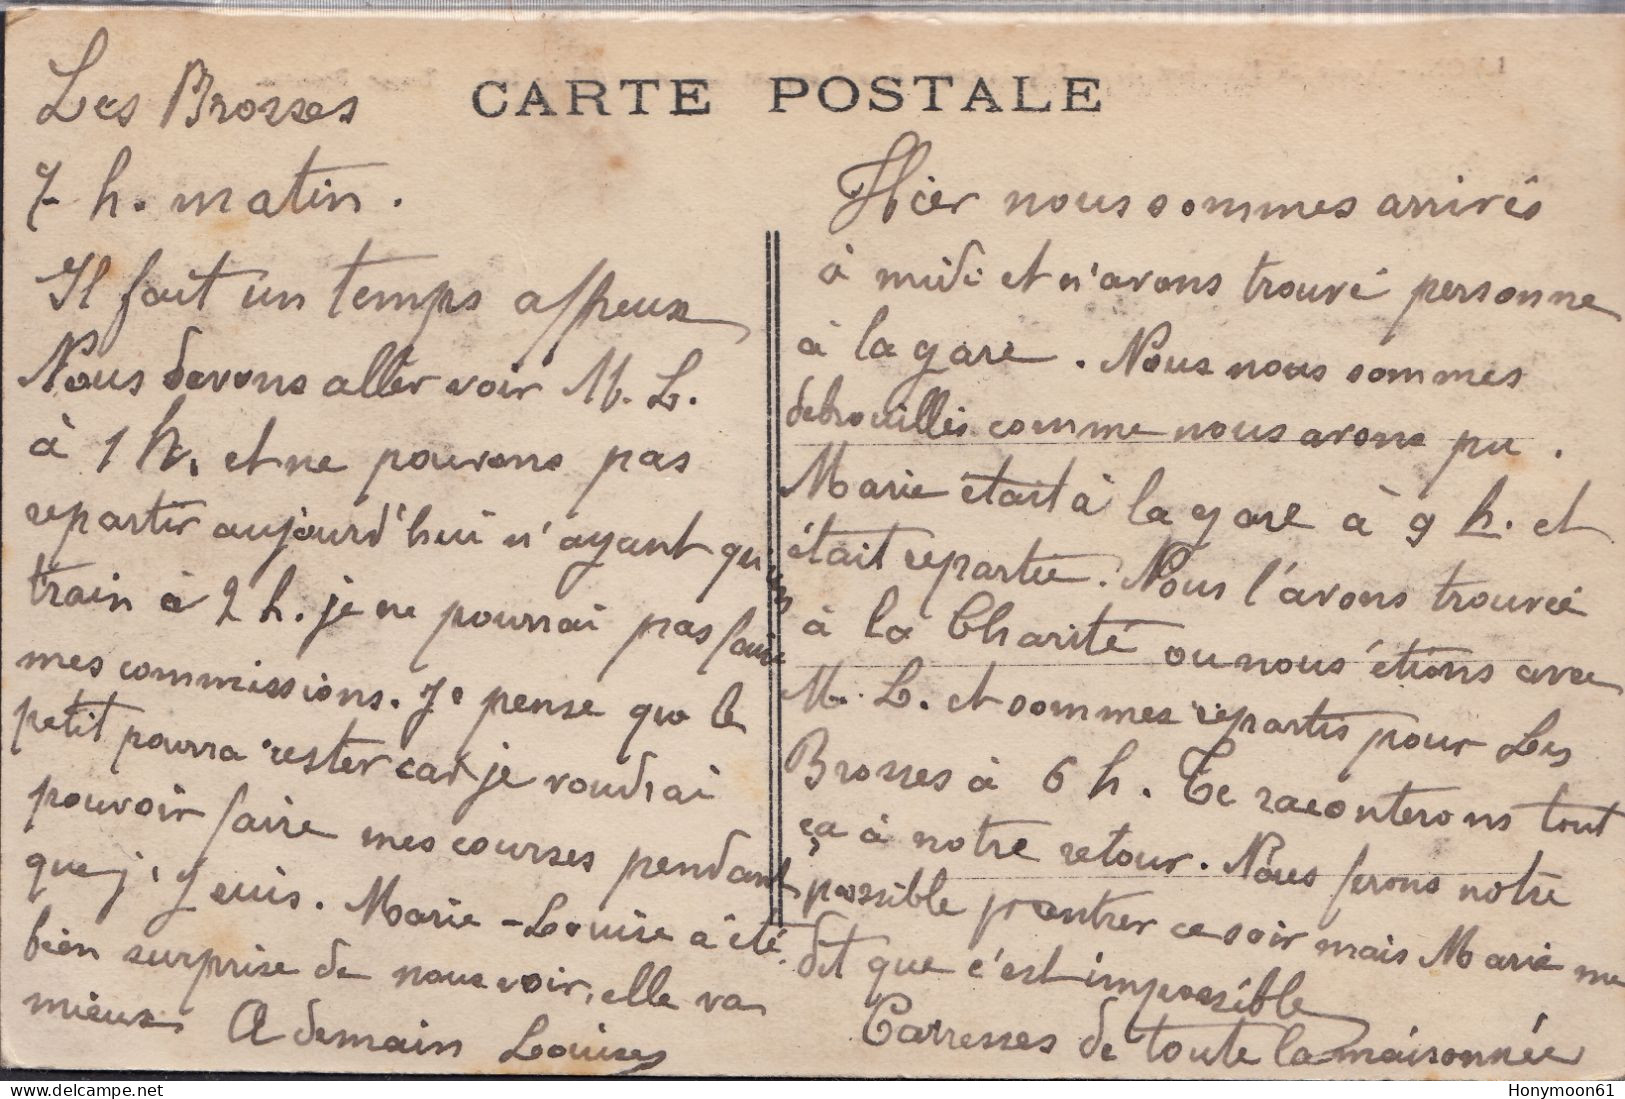 CARTE POSTALE
Les Brosses
7 h. matin.
Il fait un temps affreux
Nous devons aller voir M. L.
à 1 h. et ne pouvons pas
repartir aujourd'hui n'ayant qu'un
train à 2 h. je ne pourrai pas faire
mes commissions. Je pense que le
petit pourra rester car je voudrai
pouvoir faire mes courses pendant
que j'y suis. Marie-Louise a été
bien surprise de nous voir, elle va
mieux A demain Louise
Hier nous sommes arrivés
à midi et n'avons trouvé personne
à la gare. Nous nous sommes
debrouillés comme nous avons pu.
Marie était à la gare à 9 h. et
était repartie. Nous l'avons trouvée
à la Charité ou nous étions avec
M. L. et sommes repartis pour Les
Brosses à 6 h. Te raconterons tout
ça à notre retour. Nous ferons notre
possible prentrer ce soir mais Marie me
dit que c'est impossible
Carresses de toute la maisonnée
delcampe.net
Honymoon61